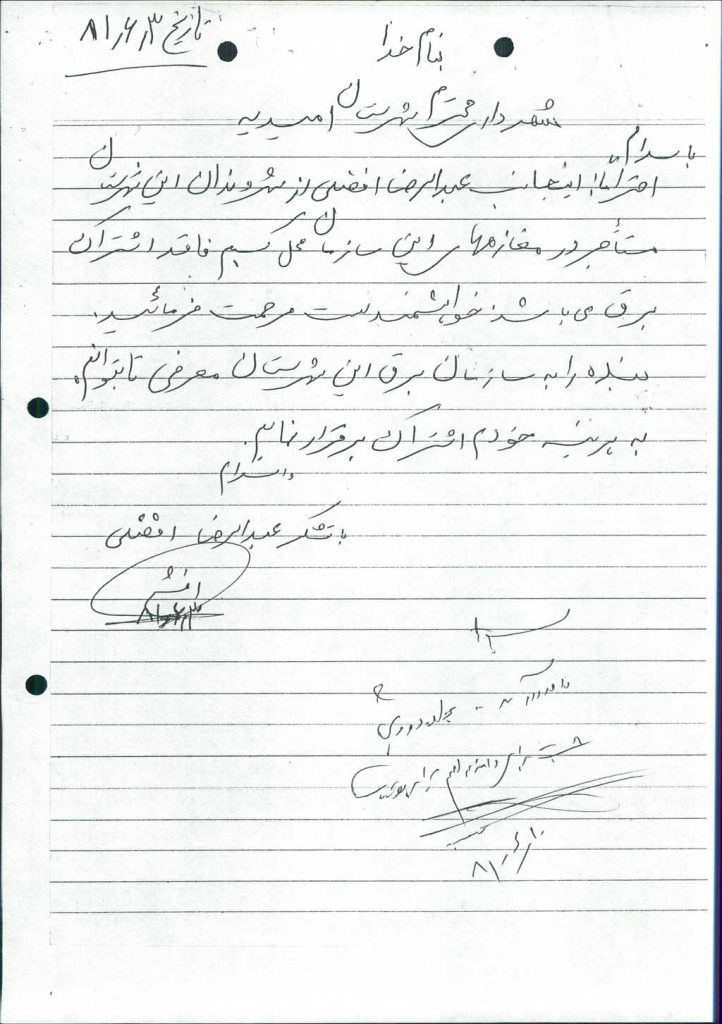 بنام خدا
تاریخ ۸۱٫۶٫۳
شهرداری محترم شهرستان امیدیه
با سلام
احتراماً اینجانب عبدالرضا افضلی از شهروندان این شهرستان
مستأجر در مغازه‌های این سازمان محل کسبم فاقد اشتراک
برق می باشد خواهشمند است مرحمت فرمائید.
بنده را به سازمان برق این شهرستان معرفی تا بتوانم
به هزینه خودم اشتراک برقرار نمایم.
والسلام
با تشکر عبدالرضا افضلی
۸۱٫۶٫۳